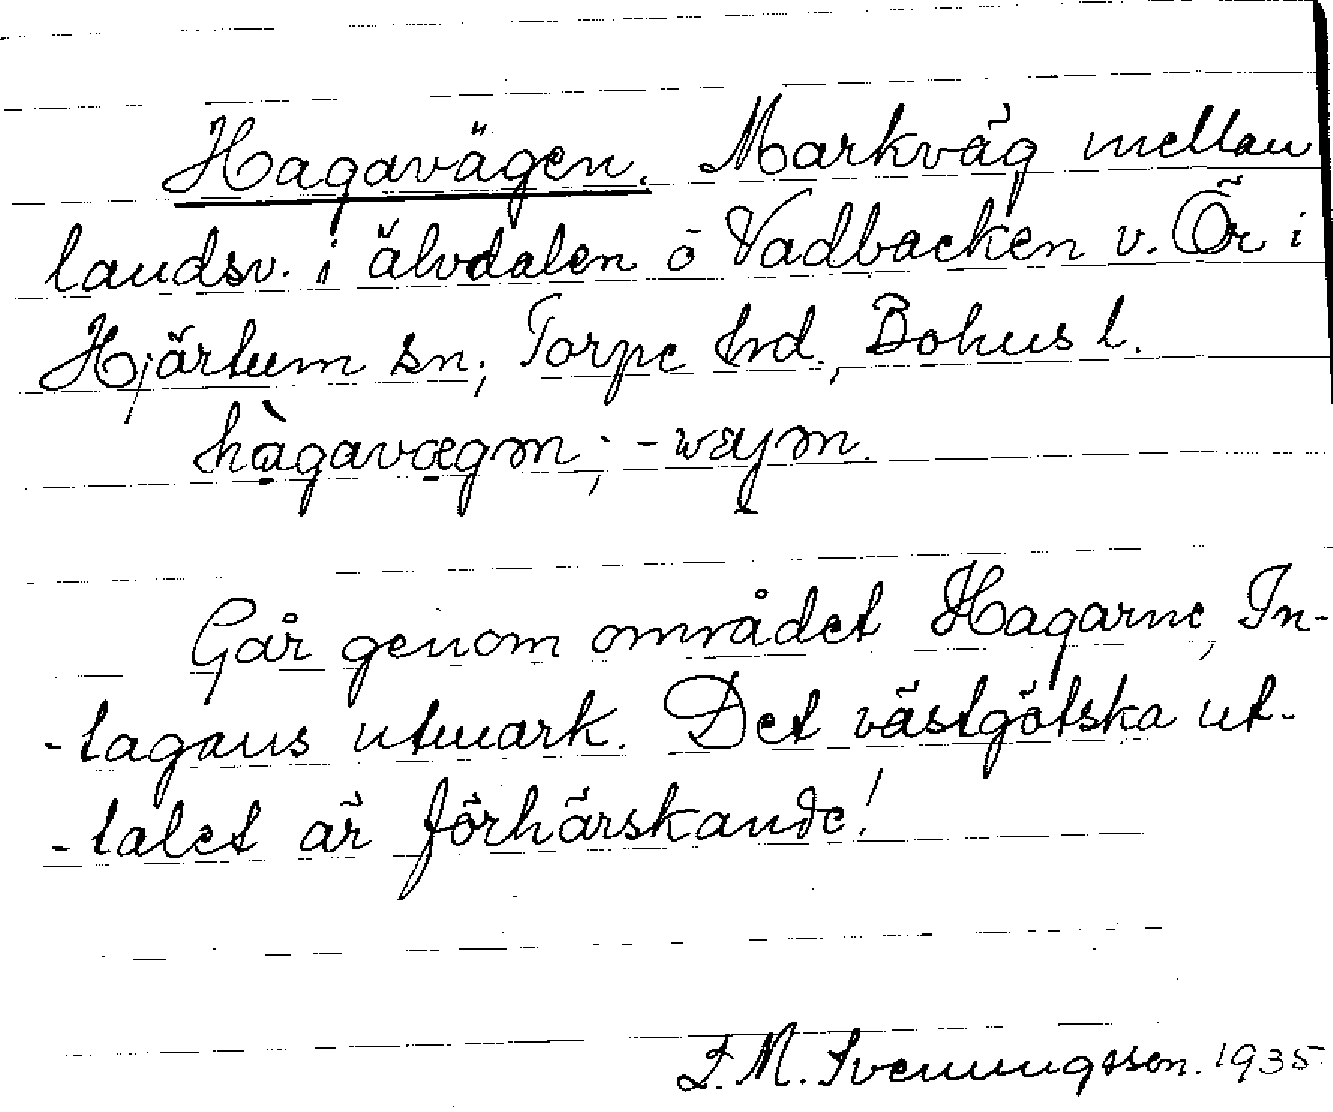 Hagavägen. Markväg mellan
landsv. i älvdalen o Vadbacken v. Ör i
Hjärtum sn, Torpe hd., Bohus l.
hàgavægm; -wæjm.
Går genom området Hagarne, In-
-tagans utmark. Det västgötska ut-
-talet är förhärskande!
F. M. Svenungsson. 1935